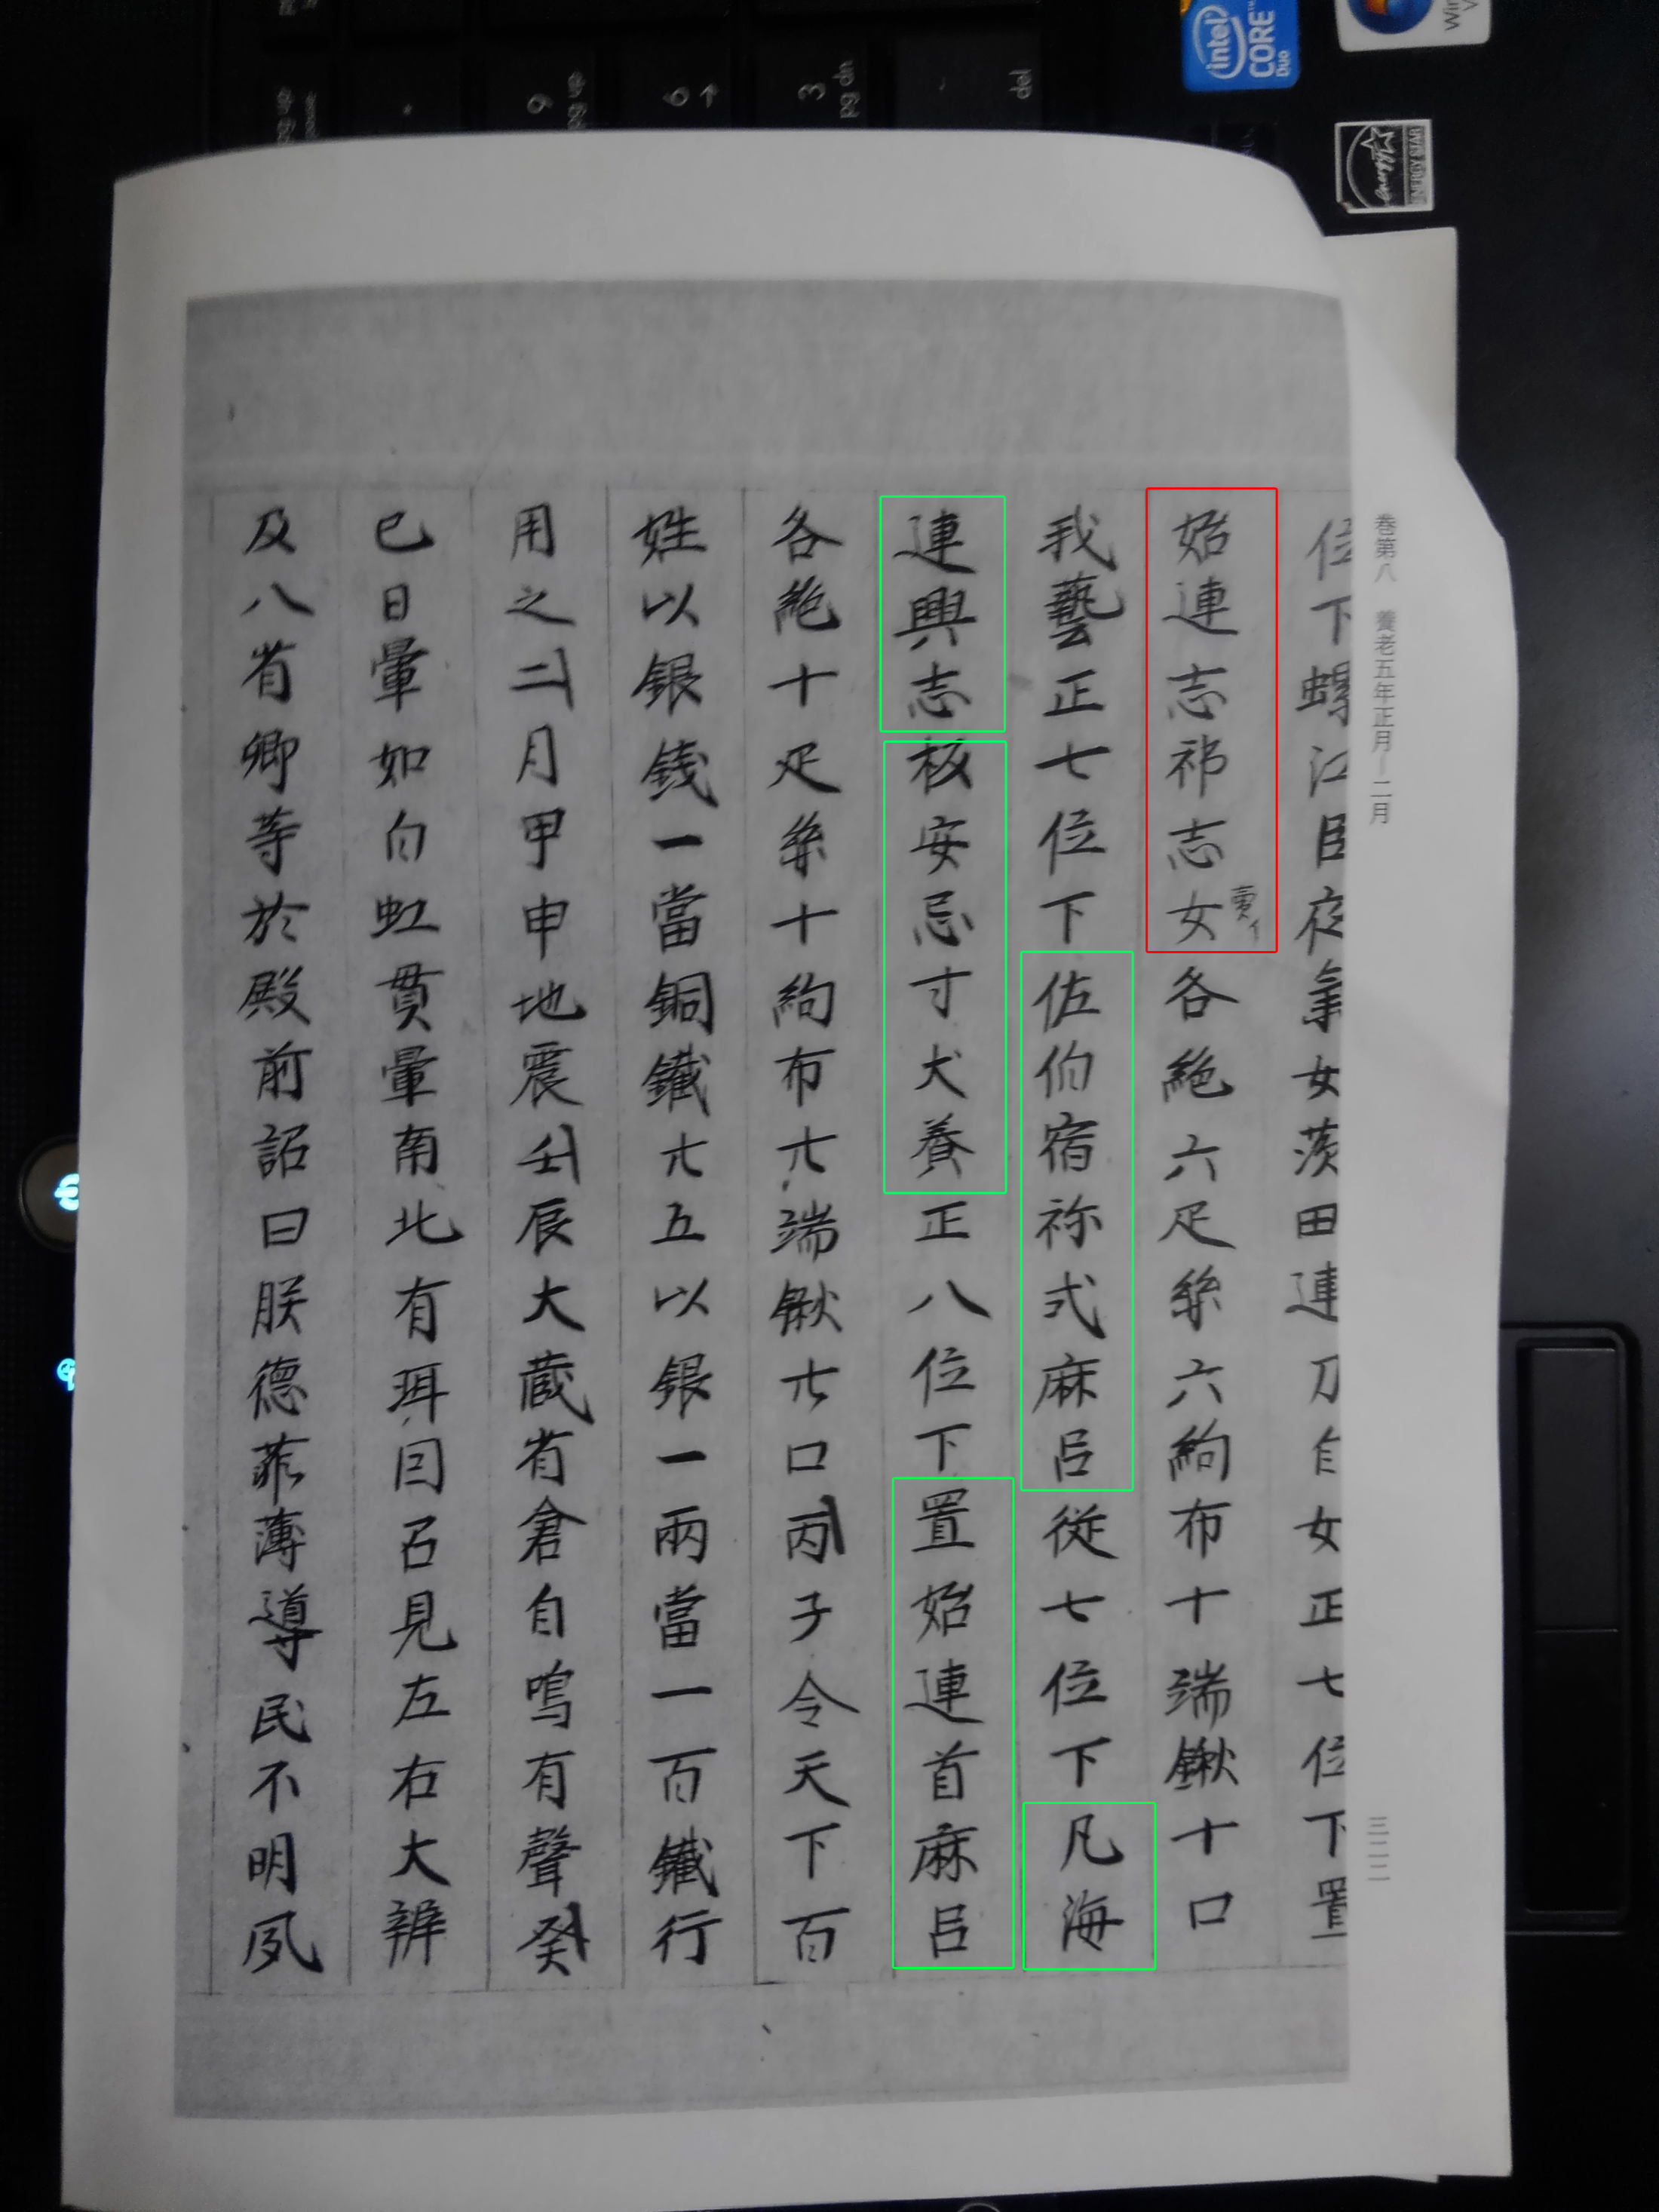 巻第八 養老五年正月―二月
位下螺江臣夜氣女茨田連刀自女正七位下置
始連志祁志女各絁六疋絲六絇布十端鍬十口
賣イ
我藝正七位下佐伯宿祢式麻呂従七位下凡海
連興志板安忌寸犬養正八位下置始連首麻呂
各絁十疋絲十絇布廿端鍬廿口丙子令天下百
姓以銀銭一當銅錢廿五以銀一兩當一百錢行
用之二月甲申地震壬辰大蔵省倉自鳴有聲癸
巳日暈如白虹貫暈南北有珥因召見左右大辨
及八省卿等於殿前詔曰朕德菲薄導民不明夙
三二二
intel CORE Duo
ENERGY STAR
Win
9 pg up
6 →
3 pg dn
del